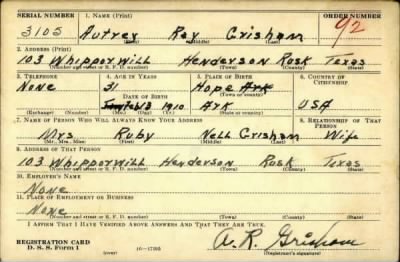 SERIAL NUMBER 1. NAME (Print) ORDER NUMBER
3105 Autrey Ray Grisham 92
(First) (Middle) (Last)
2. ADDRESS (Print)
103 Whipporwill Henderson Rusk Texas
(Number and street or R. F. D. number) (Town) (County) (State)
3. TELEPHONE 4. AGE IN YEARS 5. PLACE OF BIRTH 6. COUNTRY OF CITIZENSHIP
None 31 Hope Ark
DATE OF BIRTH (Town or county)
Feb 13 1910 Ark USA
(Exchange) (Number) (Mo.) (Day) (Yr.) (State or country)
7. NAME OF PERSON WHO WILL ALWAYS KNOW YOUR ADDRESS 8. RELATIONSHIP OF THAT PERSON
Mrs Ruby Nell Grisham Wife
(Mr., Mrs., Miss) (First) (Middle) (Last)
9. ADDRESS OF THAT PERSON
103 Whipporwill Henderson Rusk Texas
(Number and street or R. F. D. number) (Town) (County) (State)
10. EMPLOYER'S NAME
None
11. PLACE OF EMPLOYMENT OR BUSINESS
None
(Number and street or R. F. D. number) (Town) (County) (State)
I AFFIRM THAT I HAVE VERIFIED ABOVE ANSWERS AND THAT THEY ARE TRUE.
REGISTRATION CARD A. R. Grisham
D. S. S. Form 1 (over) 16—17105 (Registrant's signature)